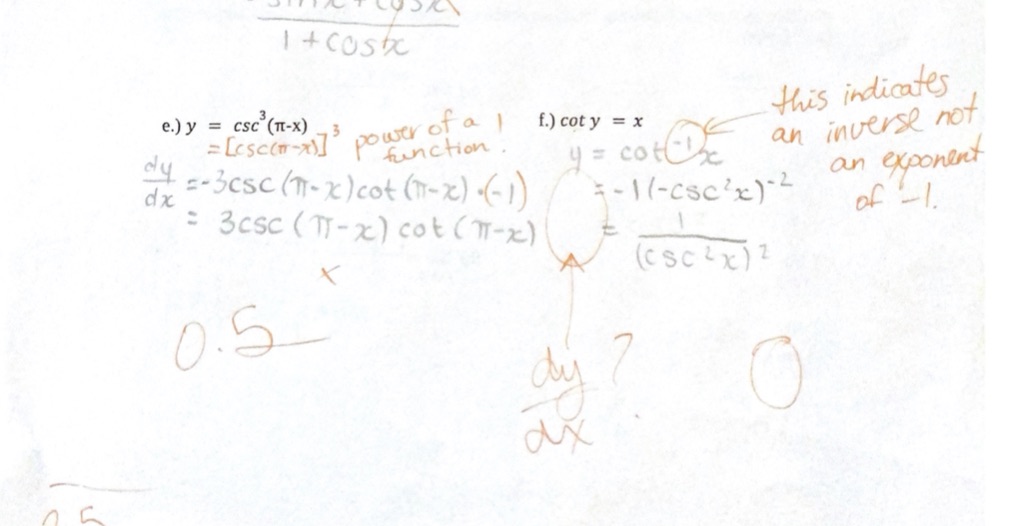 sinx + cosx
1 + cosx
e.) y = csc³(π-x)
= [csc(π-x)]³ power of a function.
dy/dx = -3csc(π-x)cot(π-x)·(-1)
= 3csc(π-x)cot(π-x)
x
0.5
f.) cot y = x
y = cot⁻¹x
= -1(-csc²x)⁻²
= 1/(csc²x)²
this indicates
an inverse not
an exponent
of -1.
dy/dx ?
0
0.5